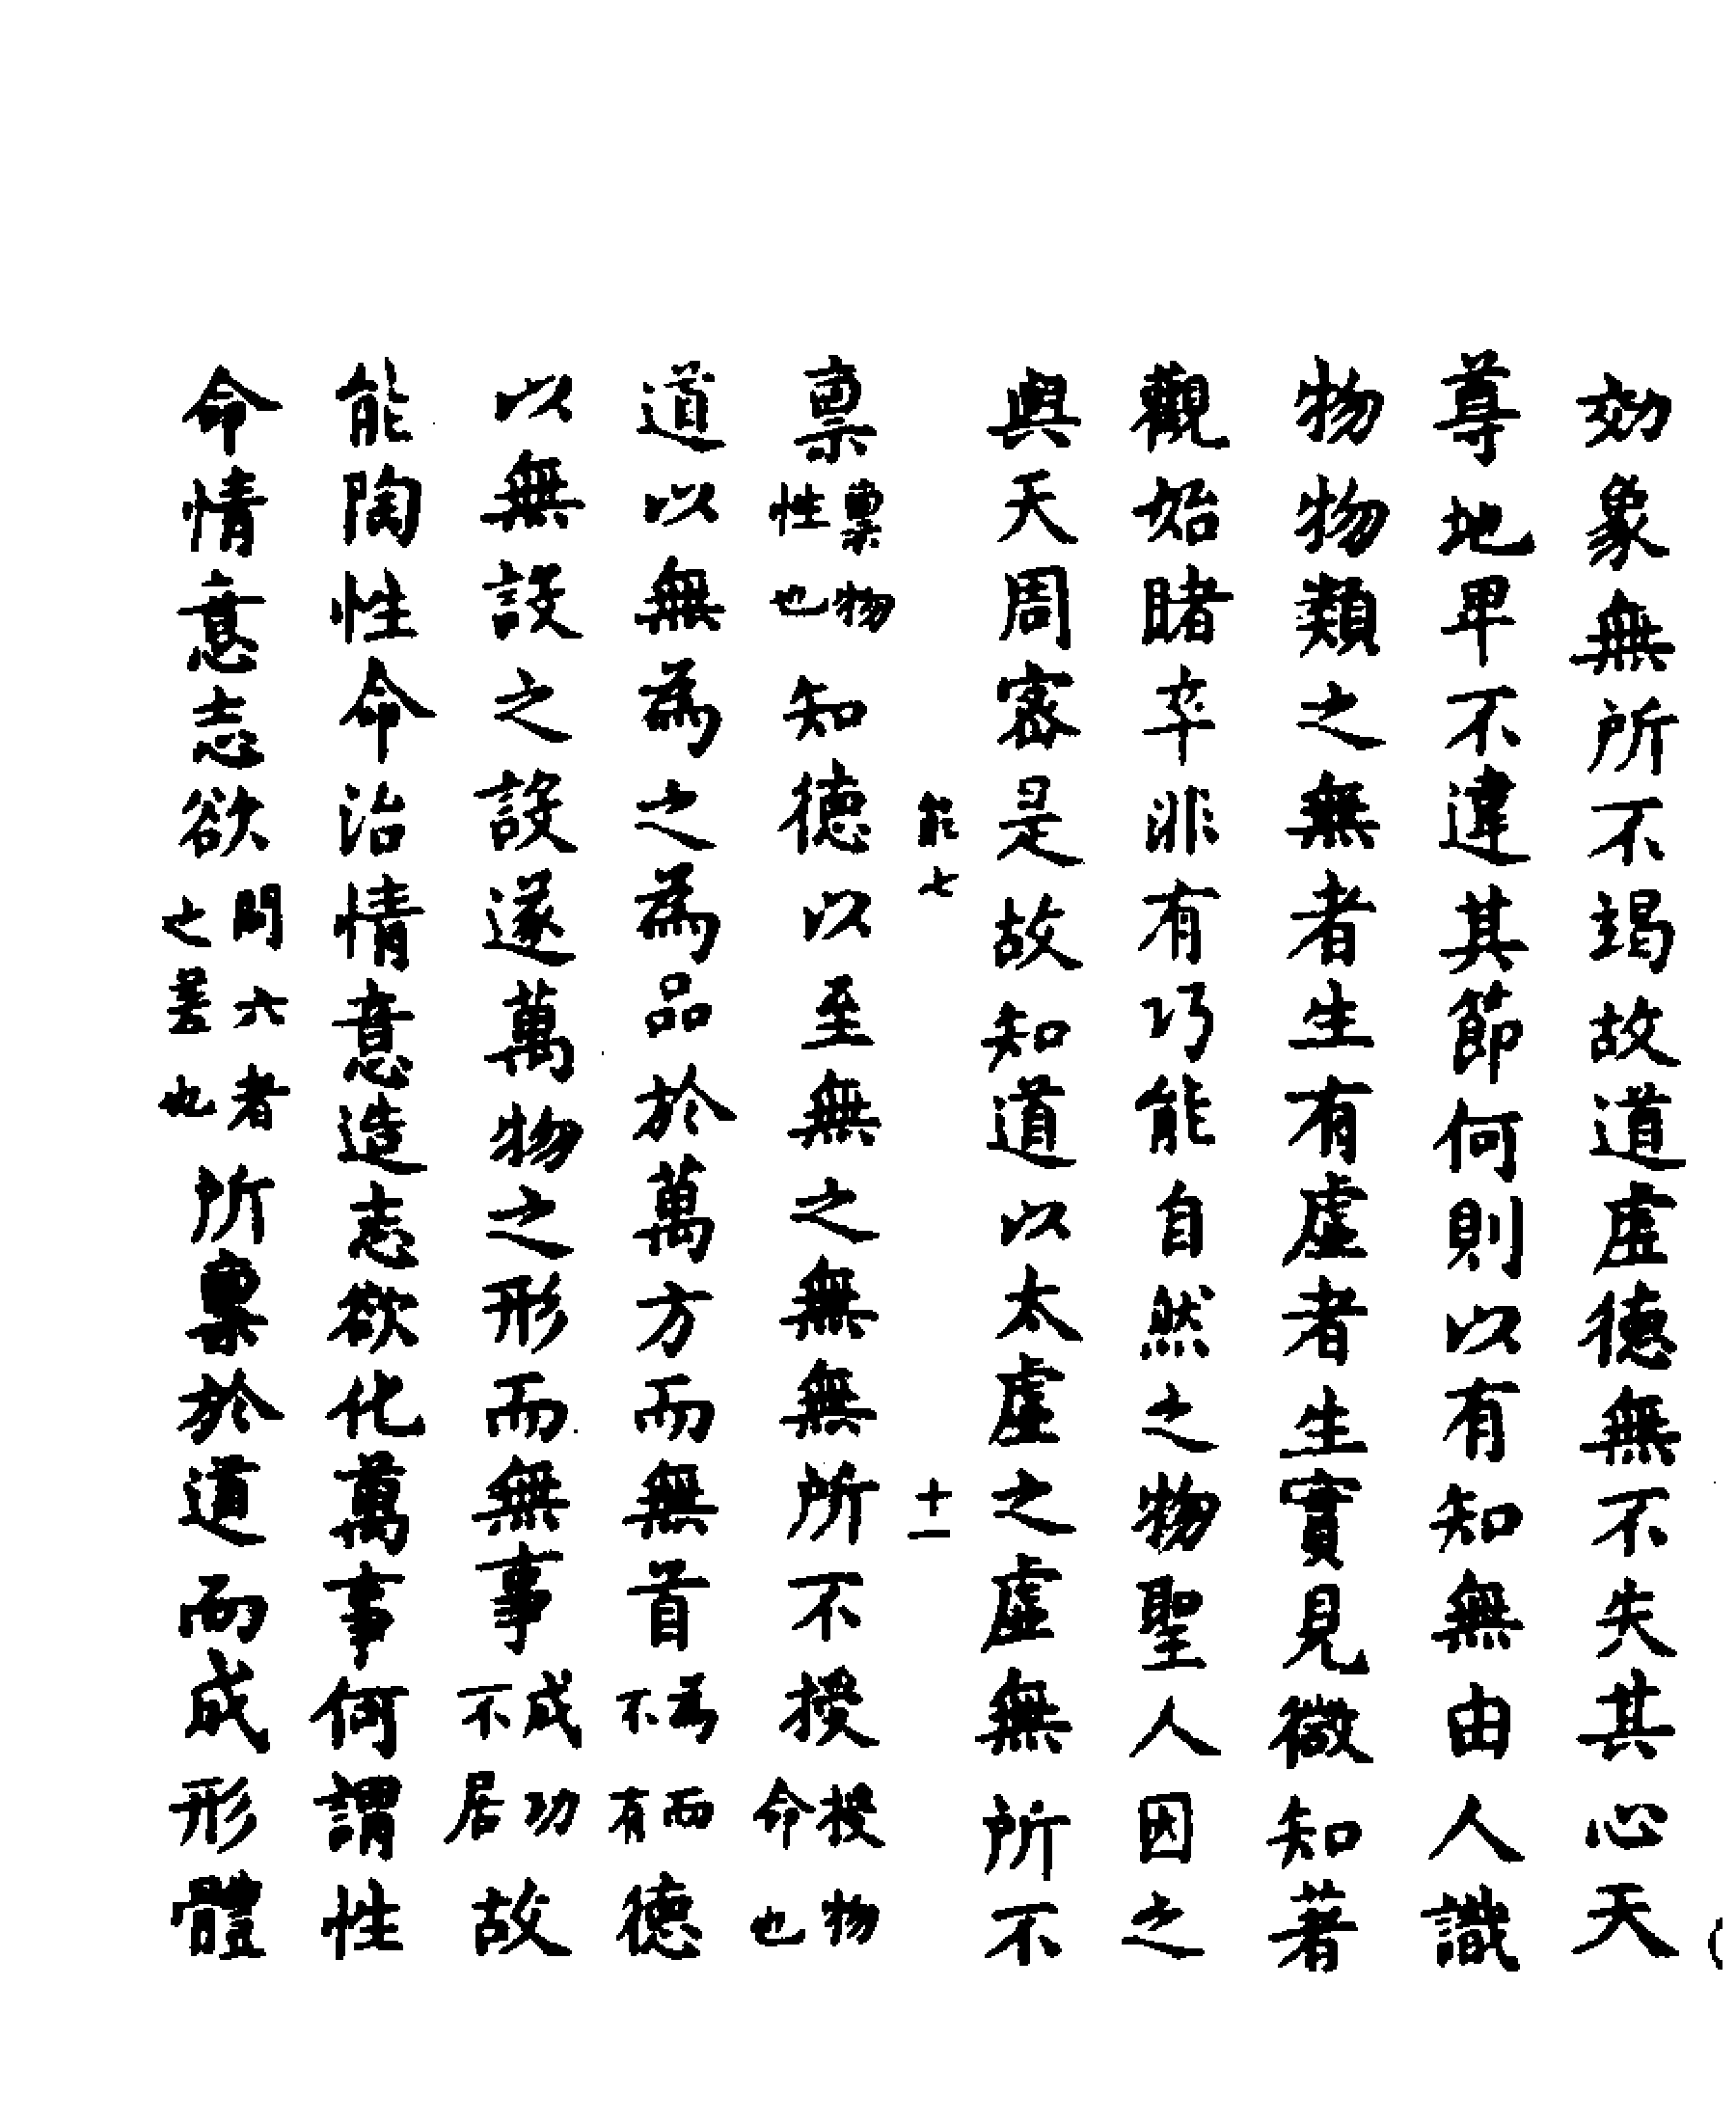 効象無所不竭故道虛德無不失其心天
尊地卑不違其節何則以有知無由人識
物物類之無者生有虛者生實見微知著
觀始睹卒非有巧能自然之物聖人因之
與天周密是故知道以太虛之虛無所不
能七 十一
稟稟物性也知德以至無之無無所不授授物命也
道以無為之為品於萬方而無首為而不有德
以無設之設遂萬物之形而無事成功不居故
能陶性命治情意造志欲化萬事何謂性
命情意志欲問六者之差也所稟於道而成形體